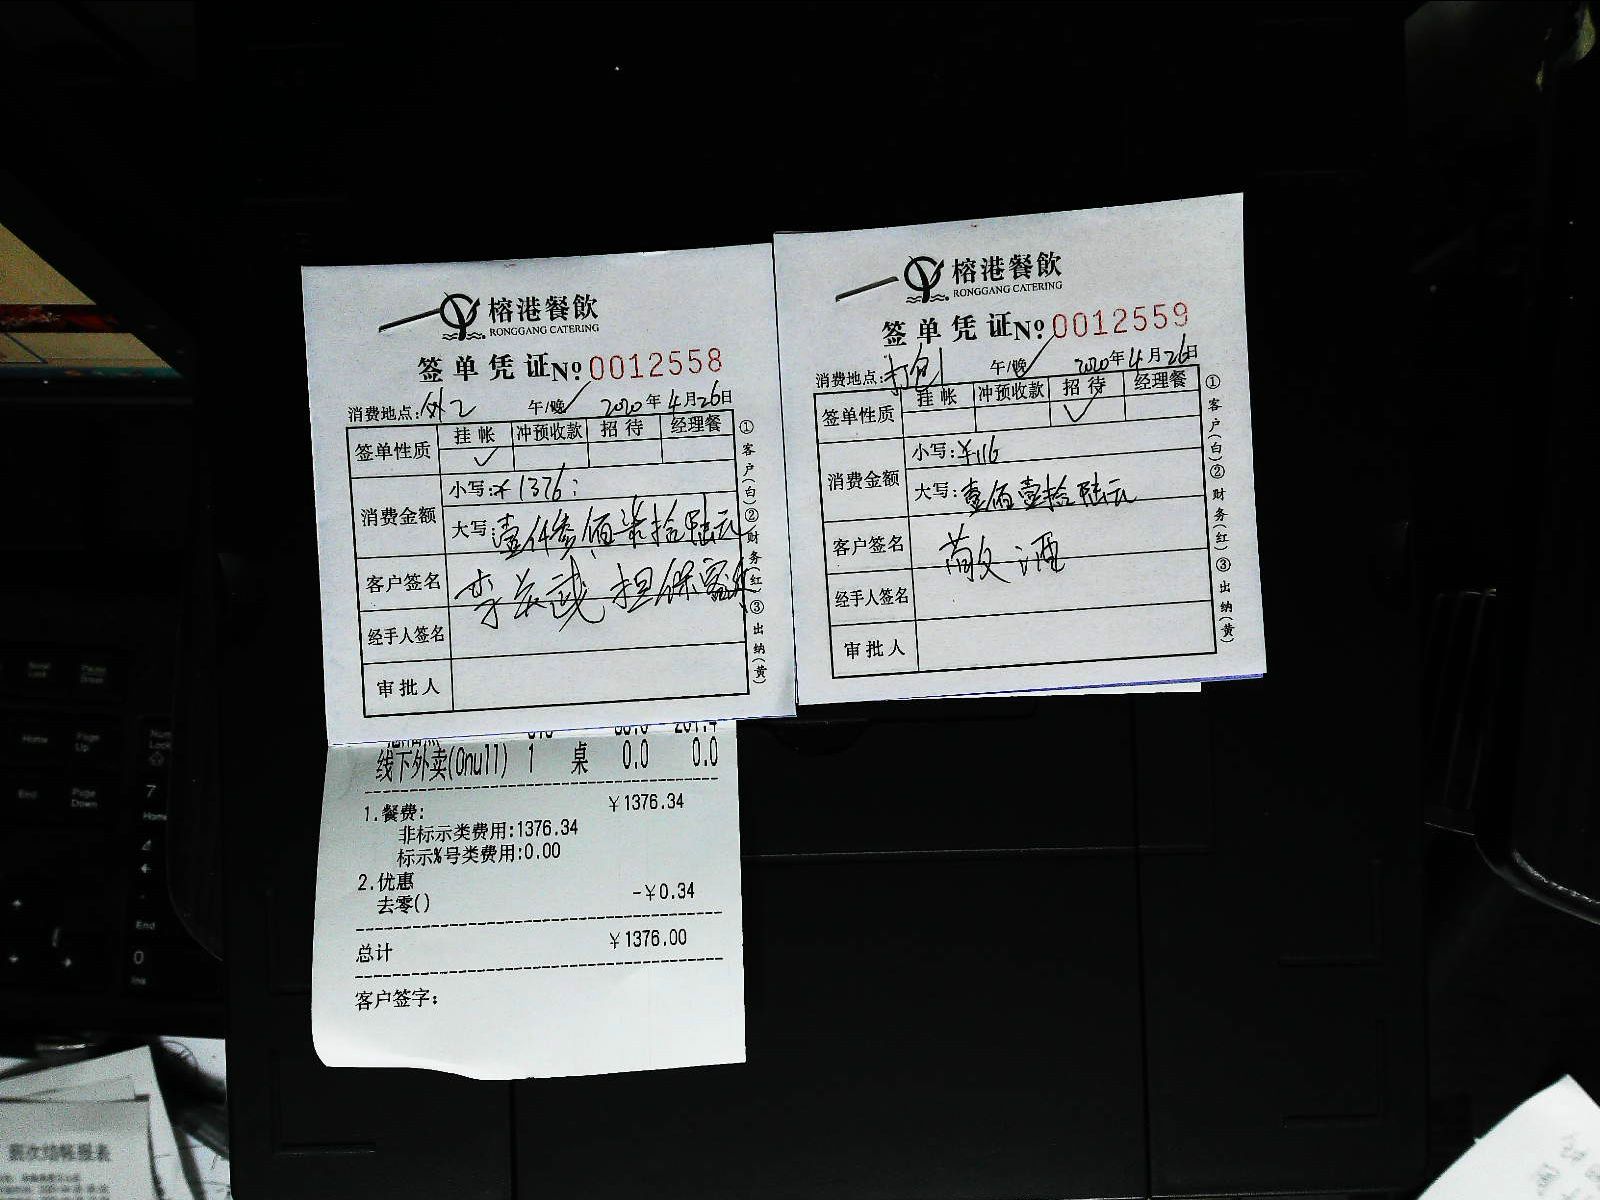 榕港餐飲
RONGGANG CATERING
签单凭证No 0012558
消费地点:外2 午/晚 2020年4月26日
签单性质 挂帐 冲预收款 招待 经理餐
✓
消费金额 小写:¥1376:
大写:壹仟叁佰柒拾陆元
客户签名 担保
经手人签名
审批人
①客户(白)②财务(红)③出纳(黄)
线下外卖(0null) 1 桌 0.0 0.0
1.餐费: ¥1376.34
非标示类费用:1376.34
标示%号类费用:0.00
2.优惠
去零() -¥0.34
总计 ¥1376.00
客户签字:
榕港餐飲
RONGGANG CATERING
签单凭证No 0012559
消费地点:打包 午/晚 2020年4月26日
签单性质 挂帐 冲预收款 招待 经理餐
✓
消费金额 小写:¥116
大写:壹佰壹拾陆元
客户签名 敬酒
经手人签名
审批人
①客户(白)②财务(红)③出纳(黄)
Home
Page Up
End
Page Down
7
Home
End
0
Ins